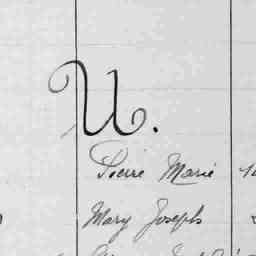 U.
Pierre Marie
Mary Joseph